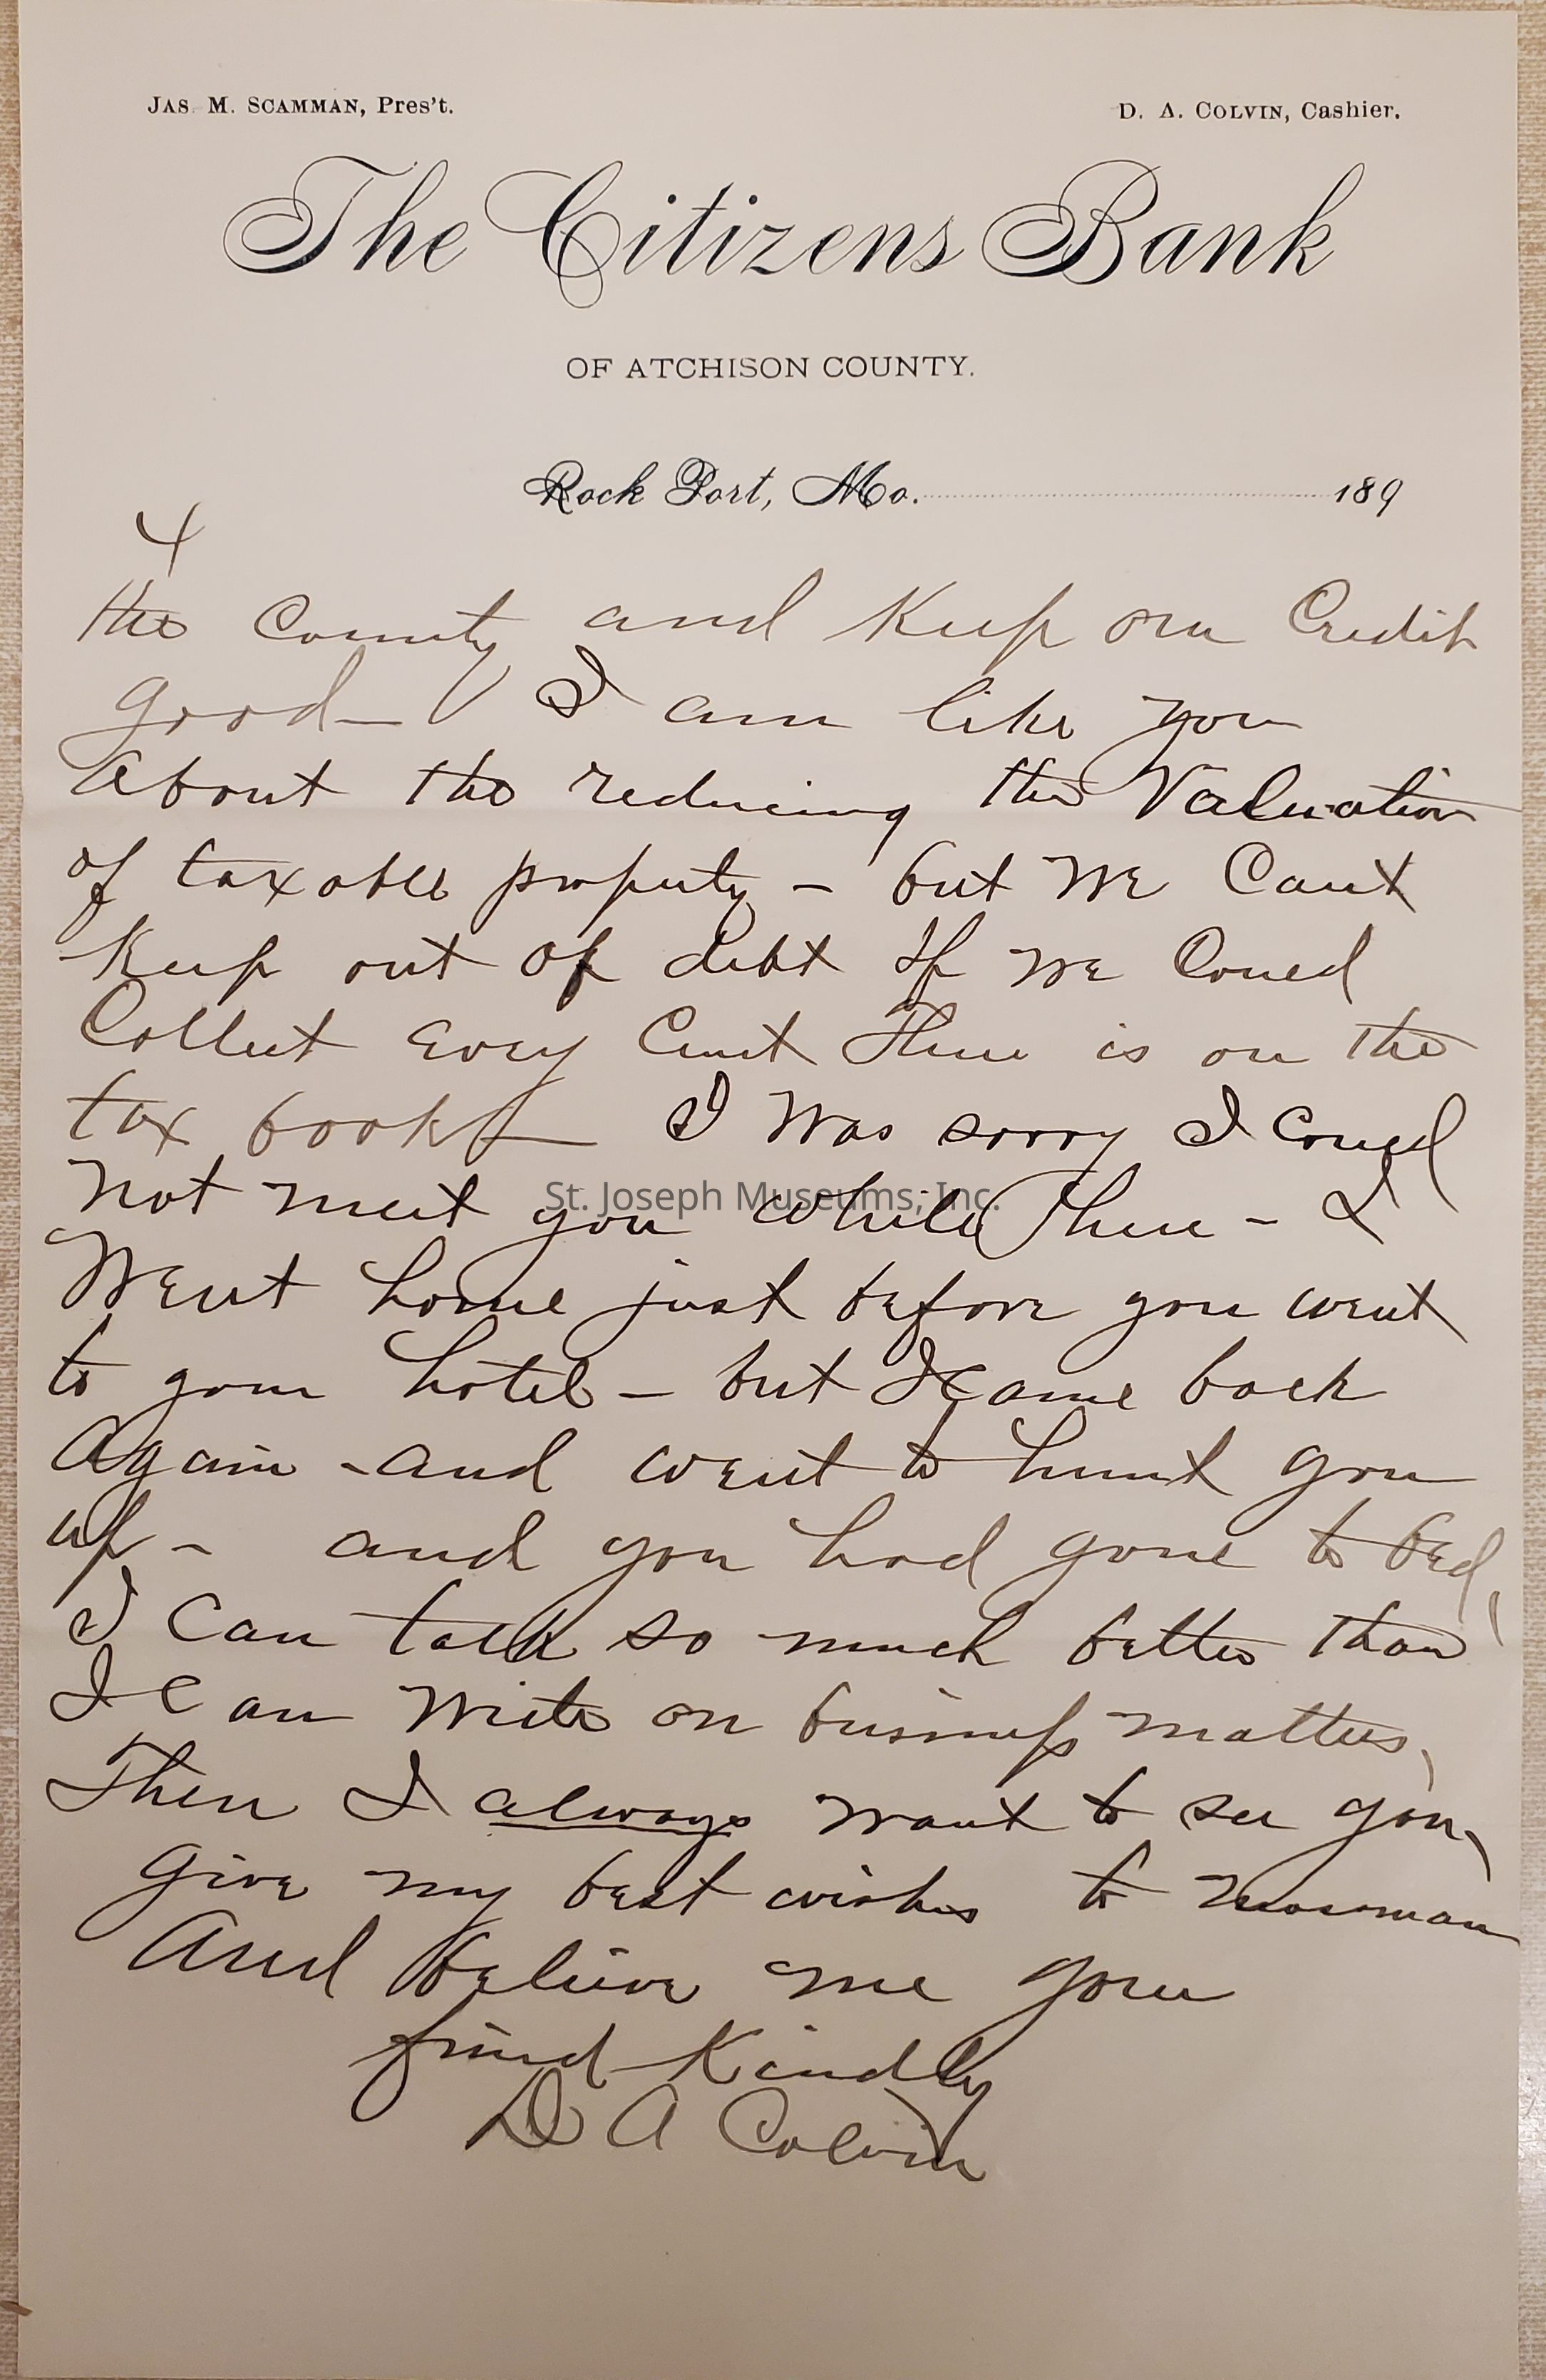 JAS. M. SCAMMAN, Pres't. D. A. COLVIN, Cashier.
The Citizens Bank
OF ATCHISON COUNTY.
Rock Port, Mo. 189
4
the County and Keep our Credit
good — I am like you
About the reducing the Valuation
of taxable property – but we Cant
Keep out of debt If we Coued
Collect Evey Cent There is on the
tax books — I Was sorry I Coued
not meet you while There – I
Went home just before you went
to your hotel – but I came back
Again – and went to hunt you
up – and you had gone to bed,
I Can talk so much better than
I Can Write on business matters,
Then I always want to see you,
Give my best wishes to Mossman
And Believe me your
friend Kindly
D A Colvin
St. Joseph Museums, Inc.